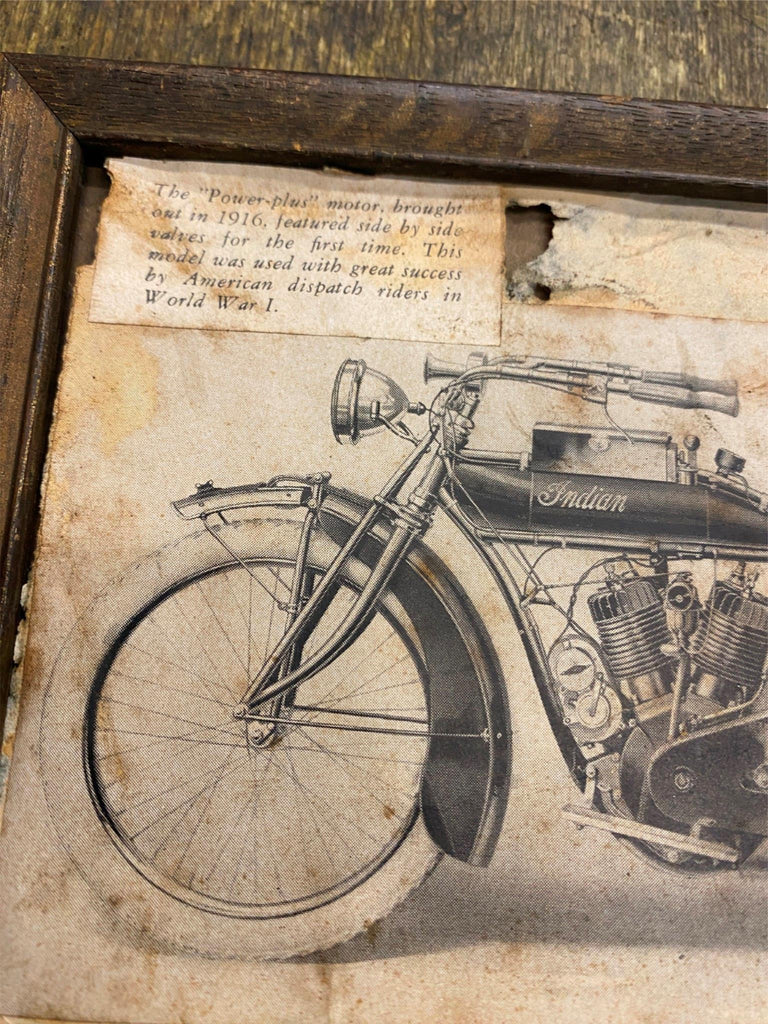 The "Power-plus" motor, brought
out in 1916, featured side by side
valves for the first time. This
model was used with great success
by American dispatch riders in
World War I.
Indian